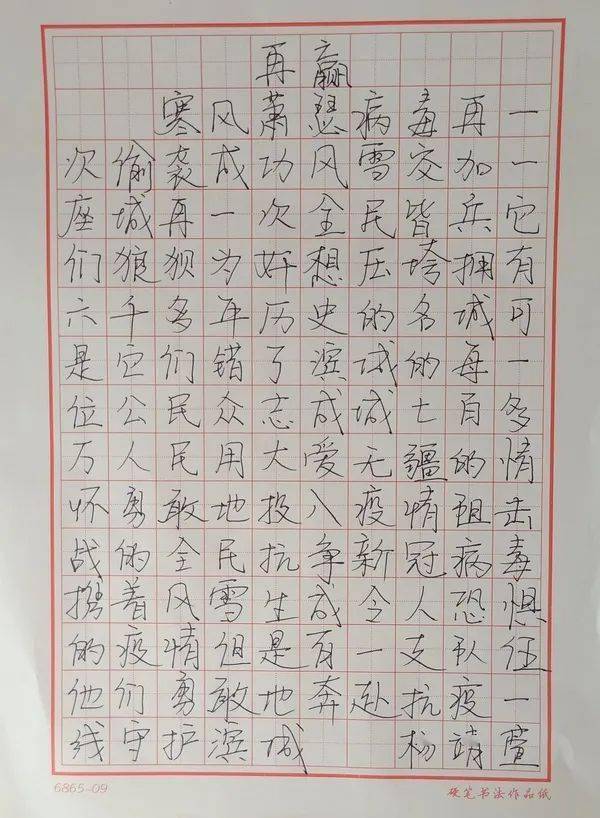 再赢
寒风萧瑟病毒再一
次偷袭成功风雪交加一
座城再一次全民皆兵它
们狼狈为奸想压垮拥有
六千多年历史的名城可
是它们错了滨城的每一
位公民众志成城七百多
万人民用大爱无疆的情
怀勇敢地投入疫情阻击
战的全民抗争新冠病毒
携着风雪生成令人恐惧
的疫情但是有一支队伍
他们勇敢地奔赴抗疫一
线守护滨城 杨靖萱
6865-09 硬笔书法作品纸